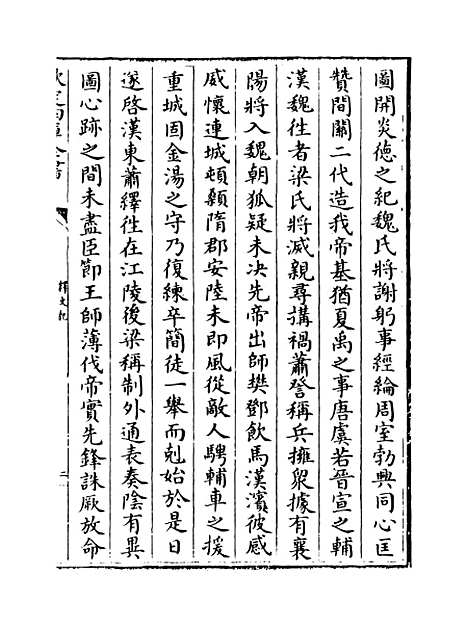 圖開炎徳之紀魏氏將謝躬事經綸周室勃興同心匡
贊間關二代造我帝基猶夏禹之事唐虞若晉宣之輔
漢魏徃者梁氏將滅親尋搆禍蕭詧稱兵擁衆據有襄
陽將入魏朝狐疑未决先帝出師樊鄧飲馬漢濱彼感
威懷連城頓顙隋郡安陸未即風從敵人騁輔車之援
重城固金湯之守乃復練卒簡徒一舉而剋始於是日
遂啓漢東蕭繹徃在江陵後梁稱制外通表奏陰有異
圖心跡之間未盡臣節王師薄伐帝實先鋒誅厥放命
欽定四庫全書
釋文紀